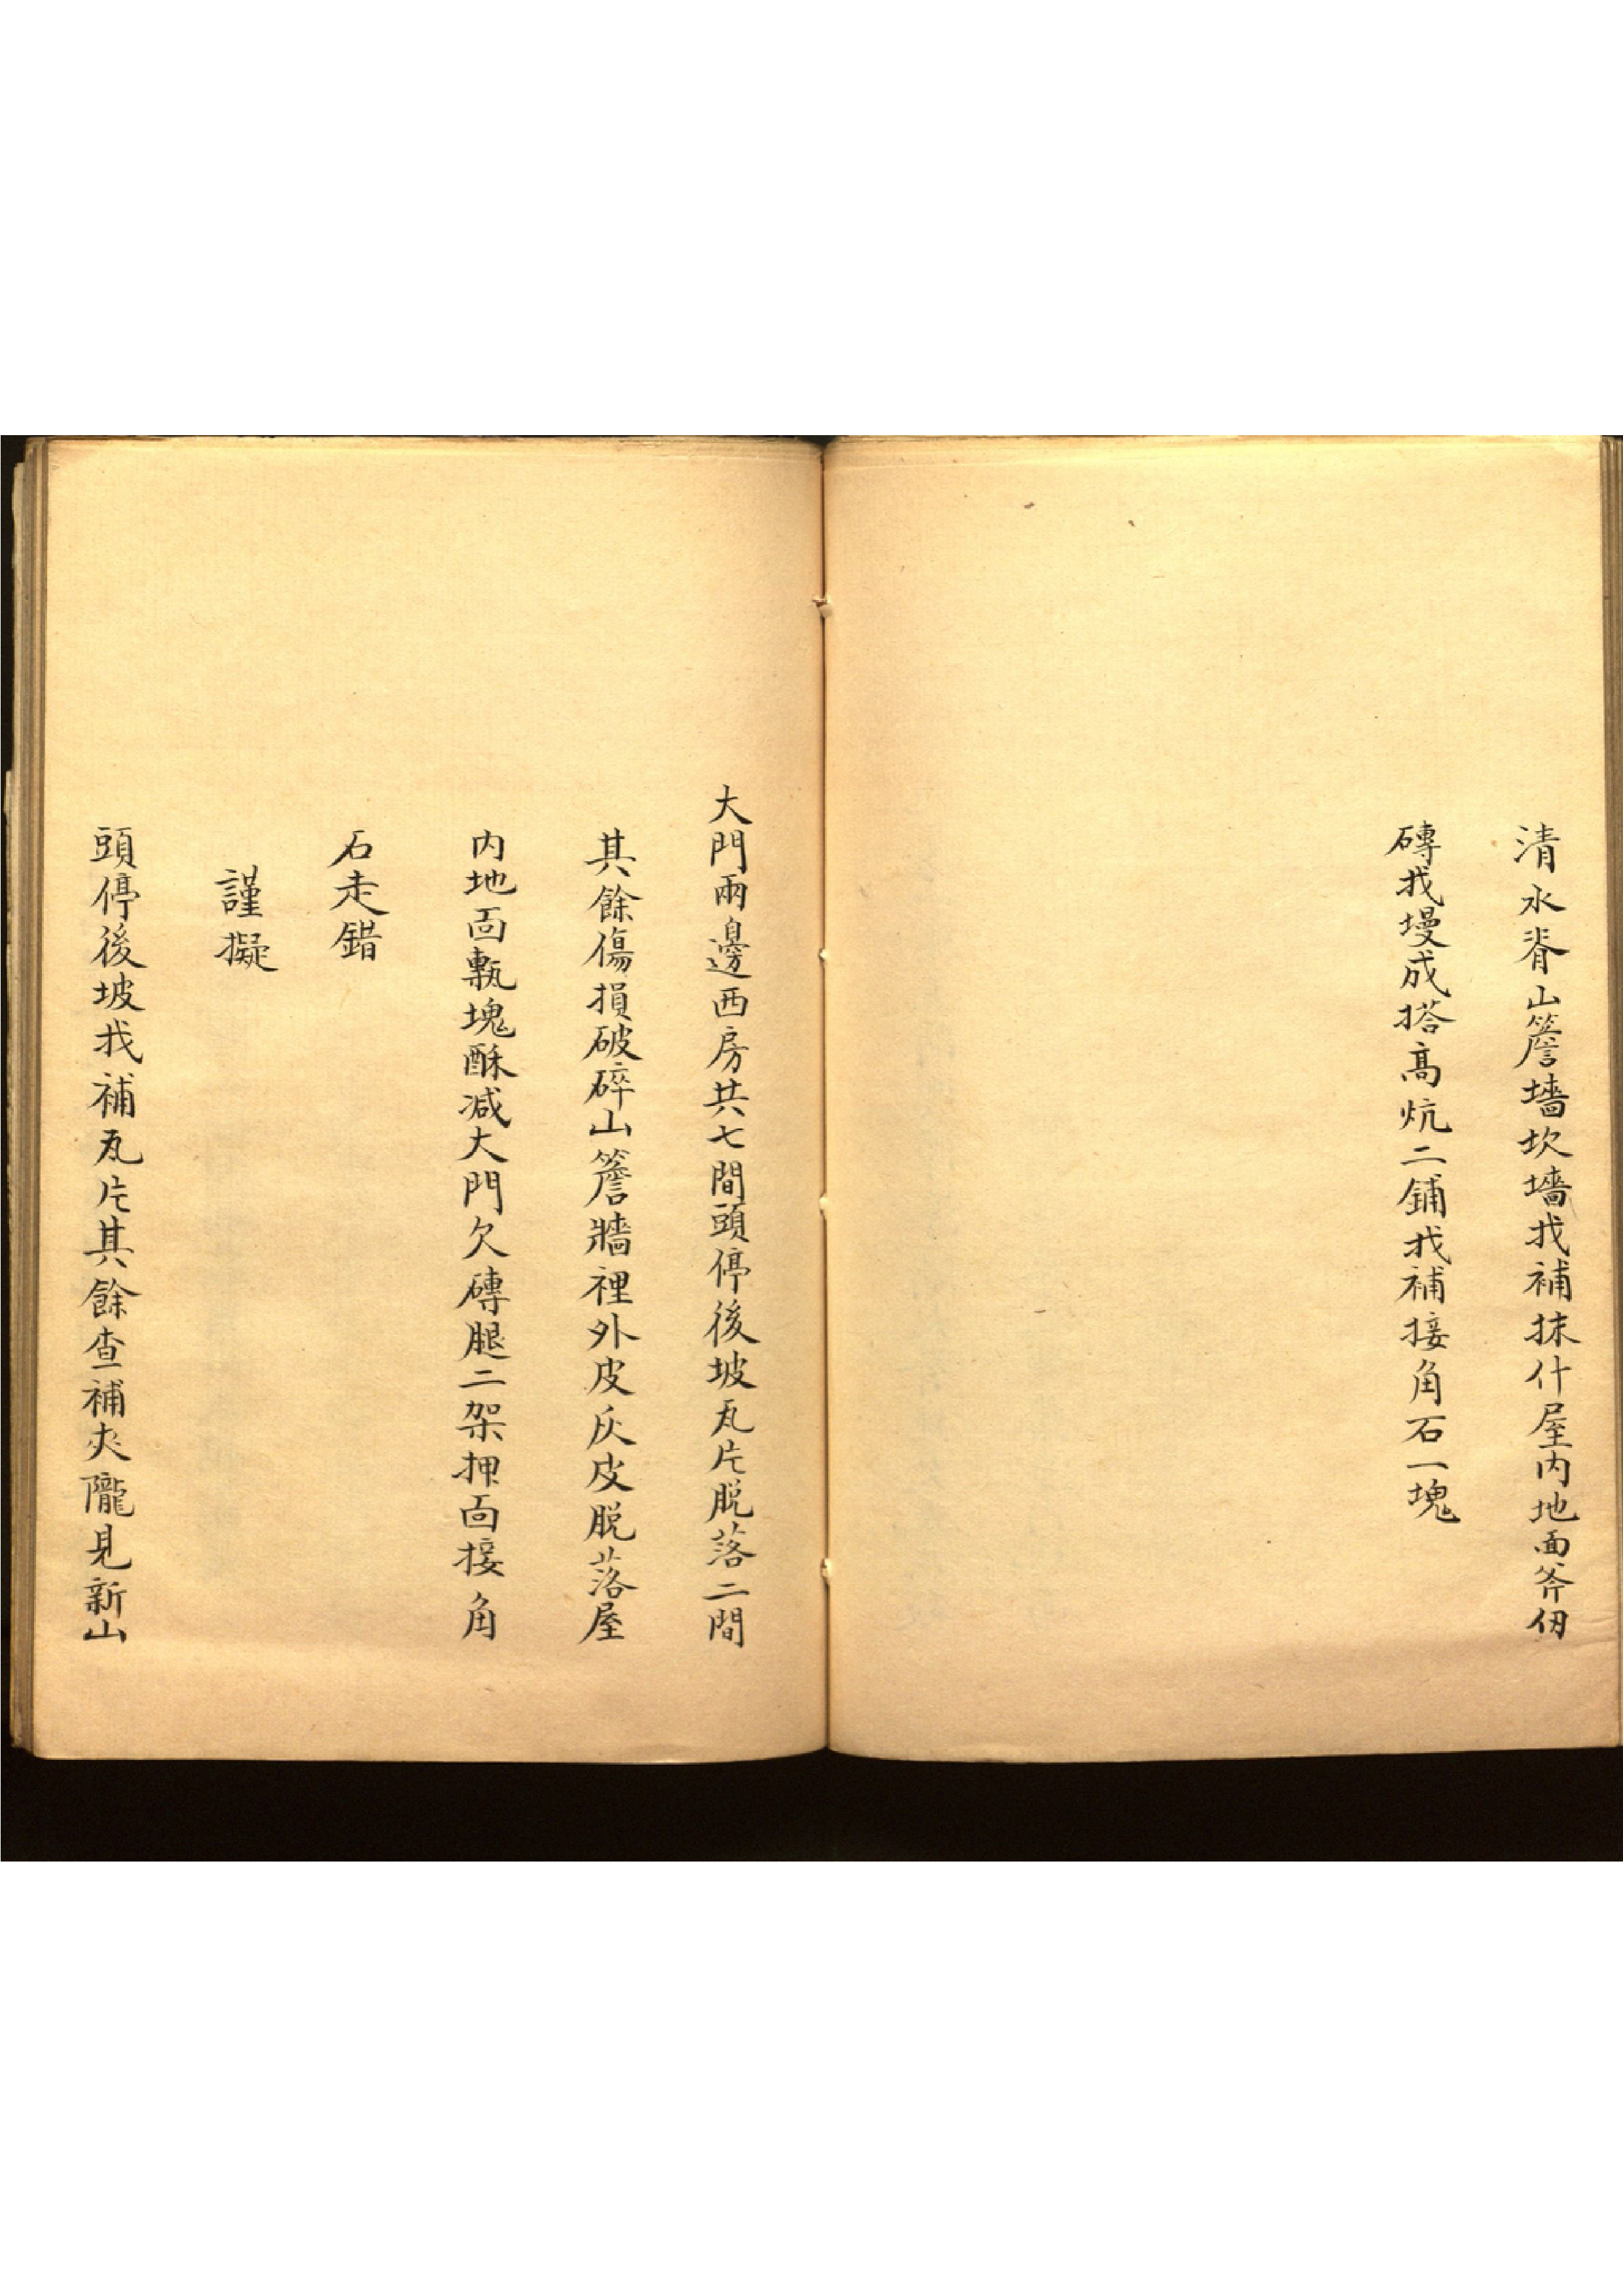 清水脊山簷墻坎墻找補抹什屋内地面斧仞
磚找墁成搭高炕二鋪找補接角石一塊
大門兩邊西房共七間頭停後坡瓦片脱落二間
其餘傷損破碎山簷牆裡外皮灰皮脱落屋
内地面甎塊酥减大門欠磚腿二架押面接角
石走錯
謹擬
頭停後坡找補瓦片其餘查補夾隴見新山